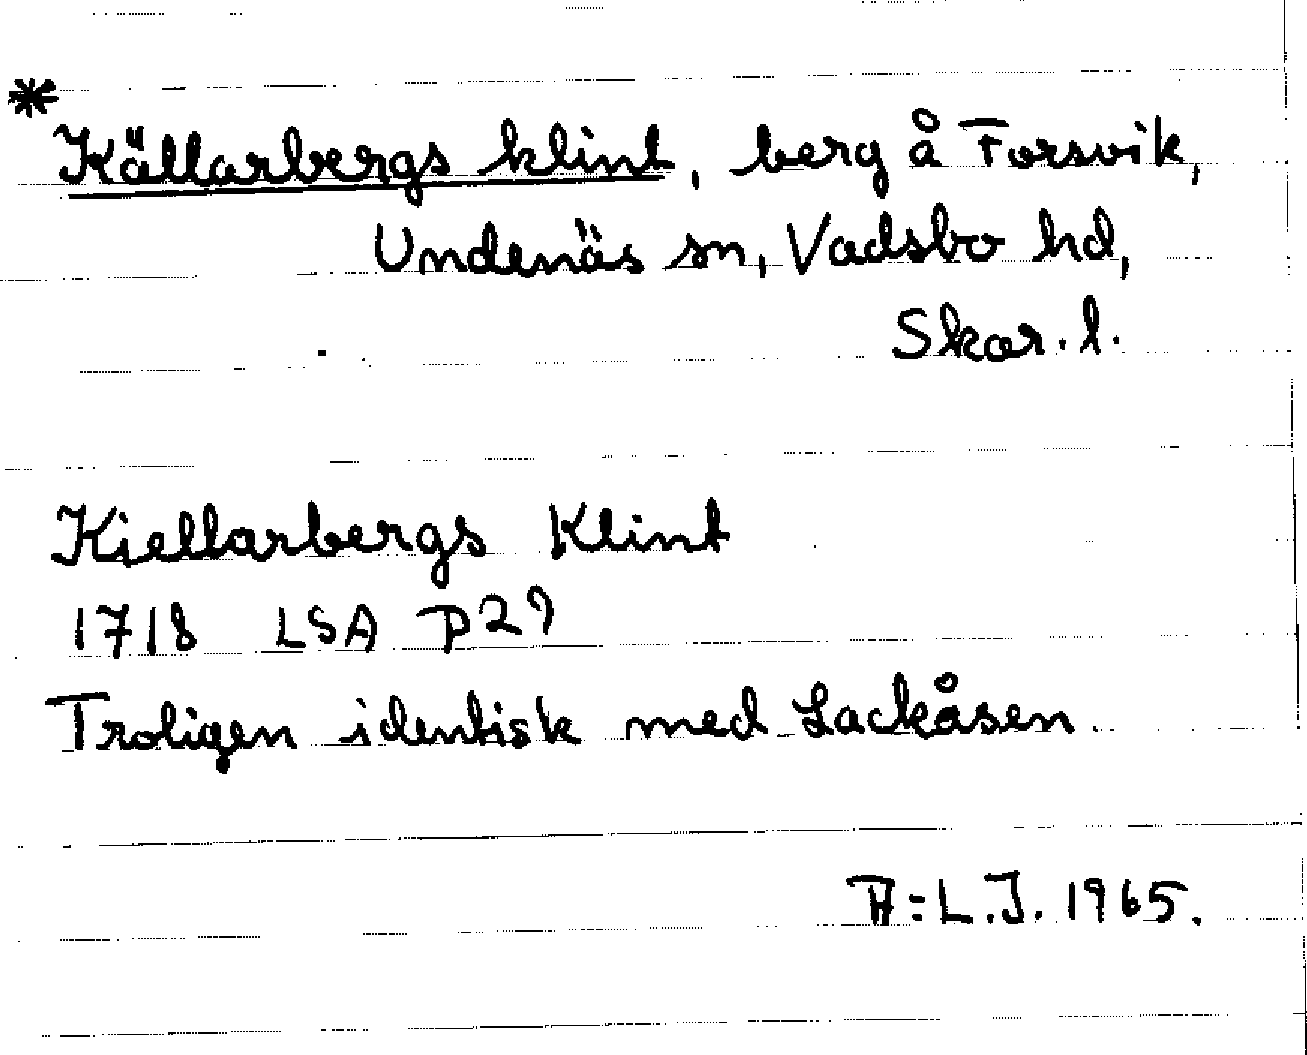 *Källarbergs klint, berg å Forsvik,
Undenäs sn, Vadsbo hd,
Skar. l.
Kiellarbergs Klint
1718 LSA P29
Troligen identisk med Lackåsen.
A=L.J. 1965.